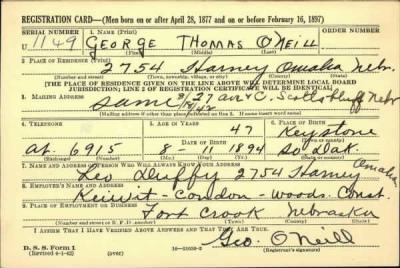 REGISTRATION CARD—(Men born on or after April 28, 1877 and on or before February 16, 1897)
SERIAL NUMBER 1. NAME (Print) ORDER NUMBER
U 1149 GEORGE THOMAS O'NEILL
(First) (Middle) (Last)
2. PLACE OF RESIDENCE (Print)
2754 Harney Omaha Nebr.
(Number and street) (Town, township, village, or city) (County) (State)
[THE PLACE OF RESIDENCE GIVEN ON THE LINE ABOVE WILL DETERMINE LOCAL BOARD
JURISDICTION; LINE 2 OF REGISTRATION CERTIFICATE WILL BE IDENTICAL]
3. MAILING ADDRESS
Same 27 Scottsbluff Nebr
[Mailing address if other than place indicated on line 2. If same insert word same]
4. TELEPHONE 5. AGE IN YEARS 6. PLACE OF BIRTH
47 Keystone
DATE OF BIRTH
At. 6915 8-11 1894 So Dak.
(Exchange) (Number) (Mo.) (Day) (Yr.) (State or country)
7. NAME AND ADDRESS OF PERSON WHO WILL ALWAYS KNOW YOUR ADDRESS
Leo Duffy 2754 Harney Omaha
8. EMPLOYER'S NAME AND ADDRESS
Keiwit-Condon-Woods Const.
9. PLACE OF EMPLOYMENT OR BUSINESS
Fort Crook Nebraska
(Number and street or R. F. D. number) (Town) (County) (State)
I AFFIRM THAT I HAVE VERIFIED ABOVE ANSWERS AND THAT THEY ARE TRUE.
D. S. S. Form 1
(Revised 4-1-42) (over)
Geo. O'Neill
(Registrant's signature)